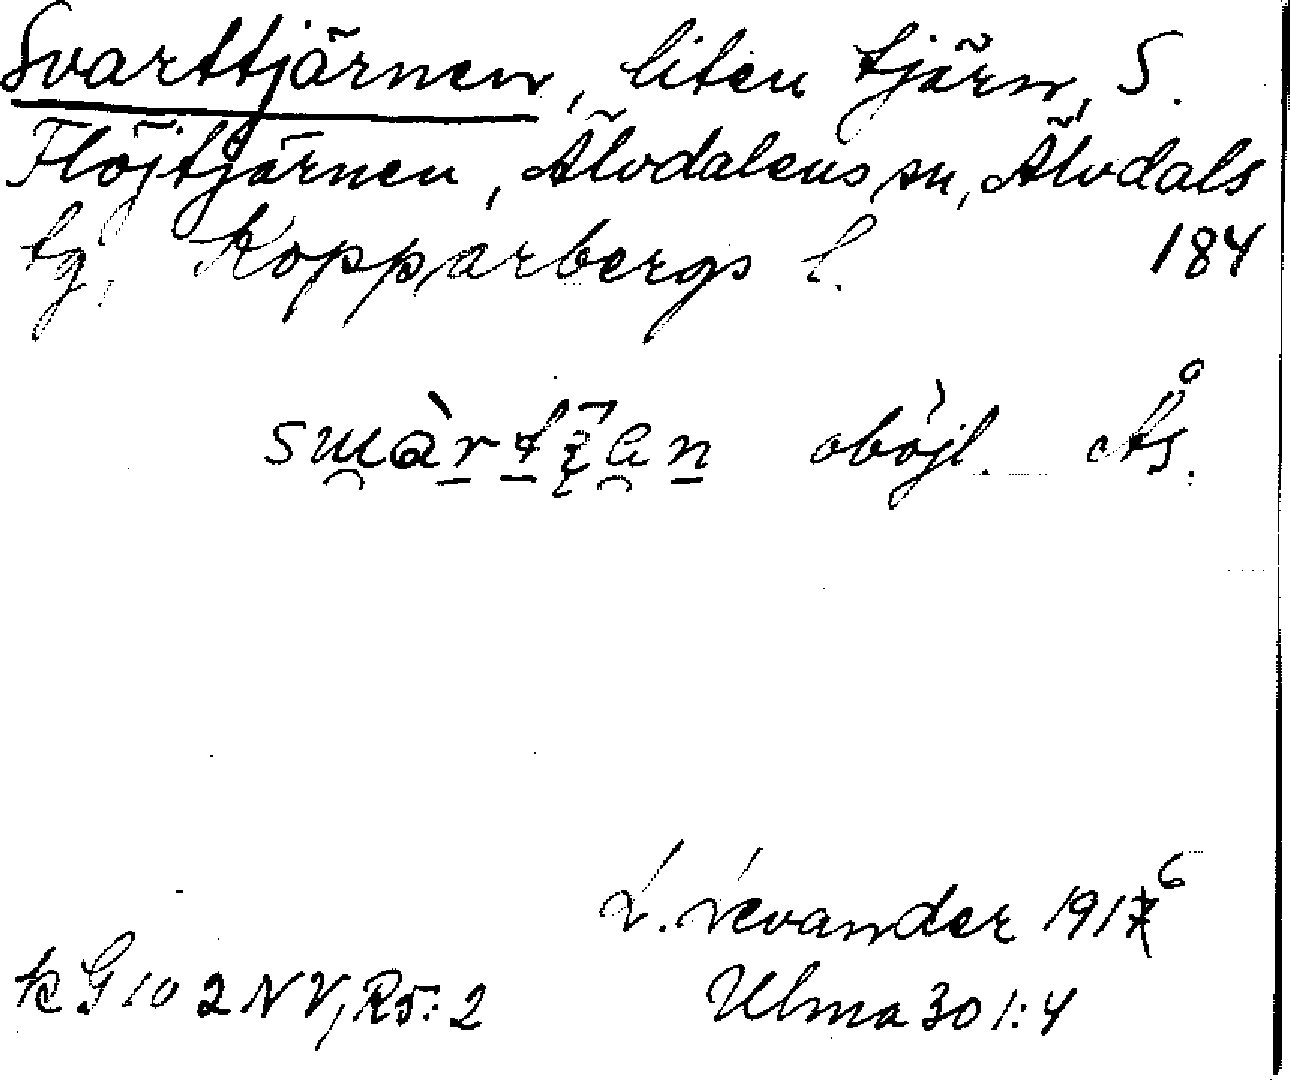 Svarttjärnen, liten tjärn, S.
Flöjtjärnen, Älvdalens sn, Älvdals
tg, Kopparbergs l. 184
oböjl. Ås.
L. Levander 1916
k G 10 2 NV, R5:2 Ulma 301:4